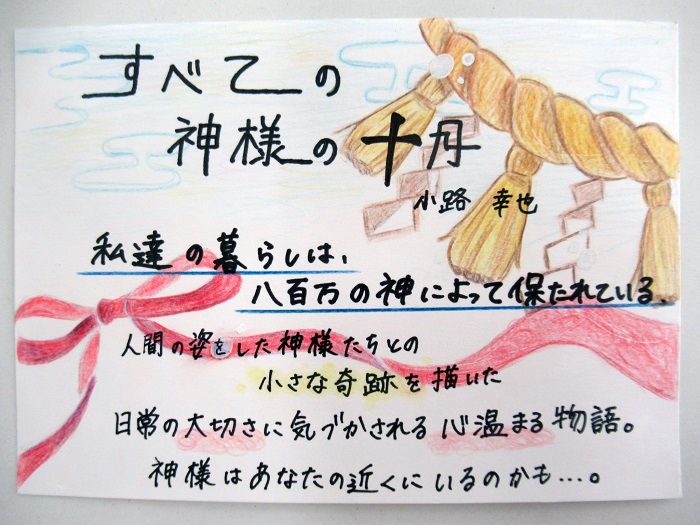 すべての
神様の十月
小路 幸也
私達の暮らしは、
八百万の神によって保たれている。
人間の姿をした神様たちとの
小さな奇跡を描いた
日常の大切さに気づかされる心温まる物語。
神様はあなたの近くにいるのかも…。